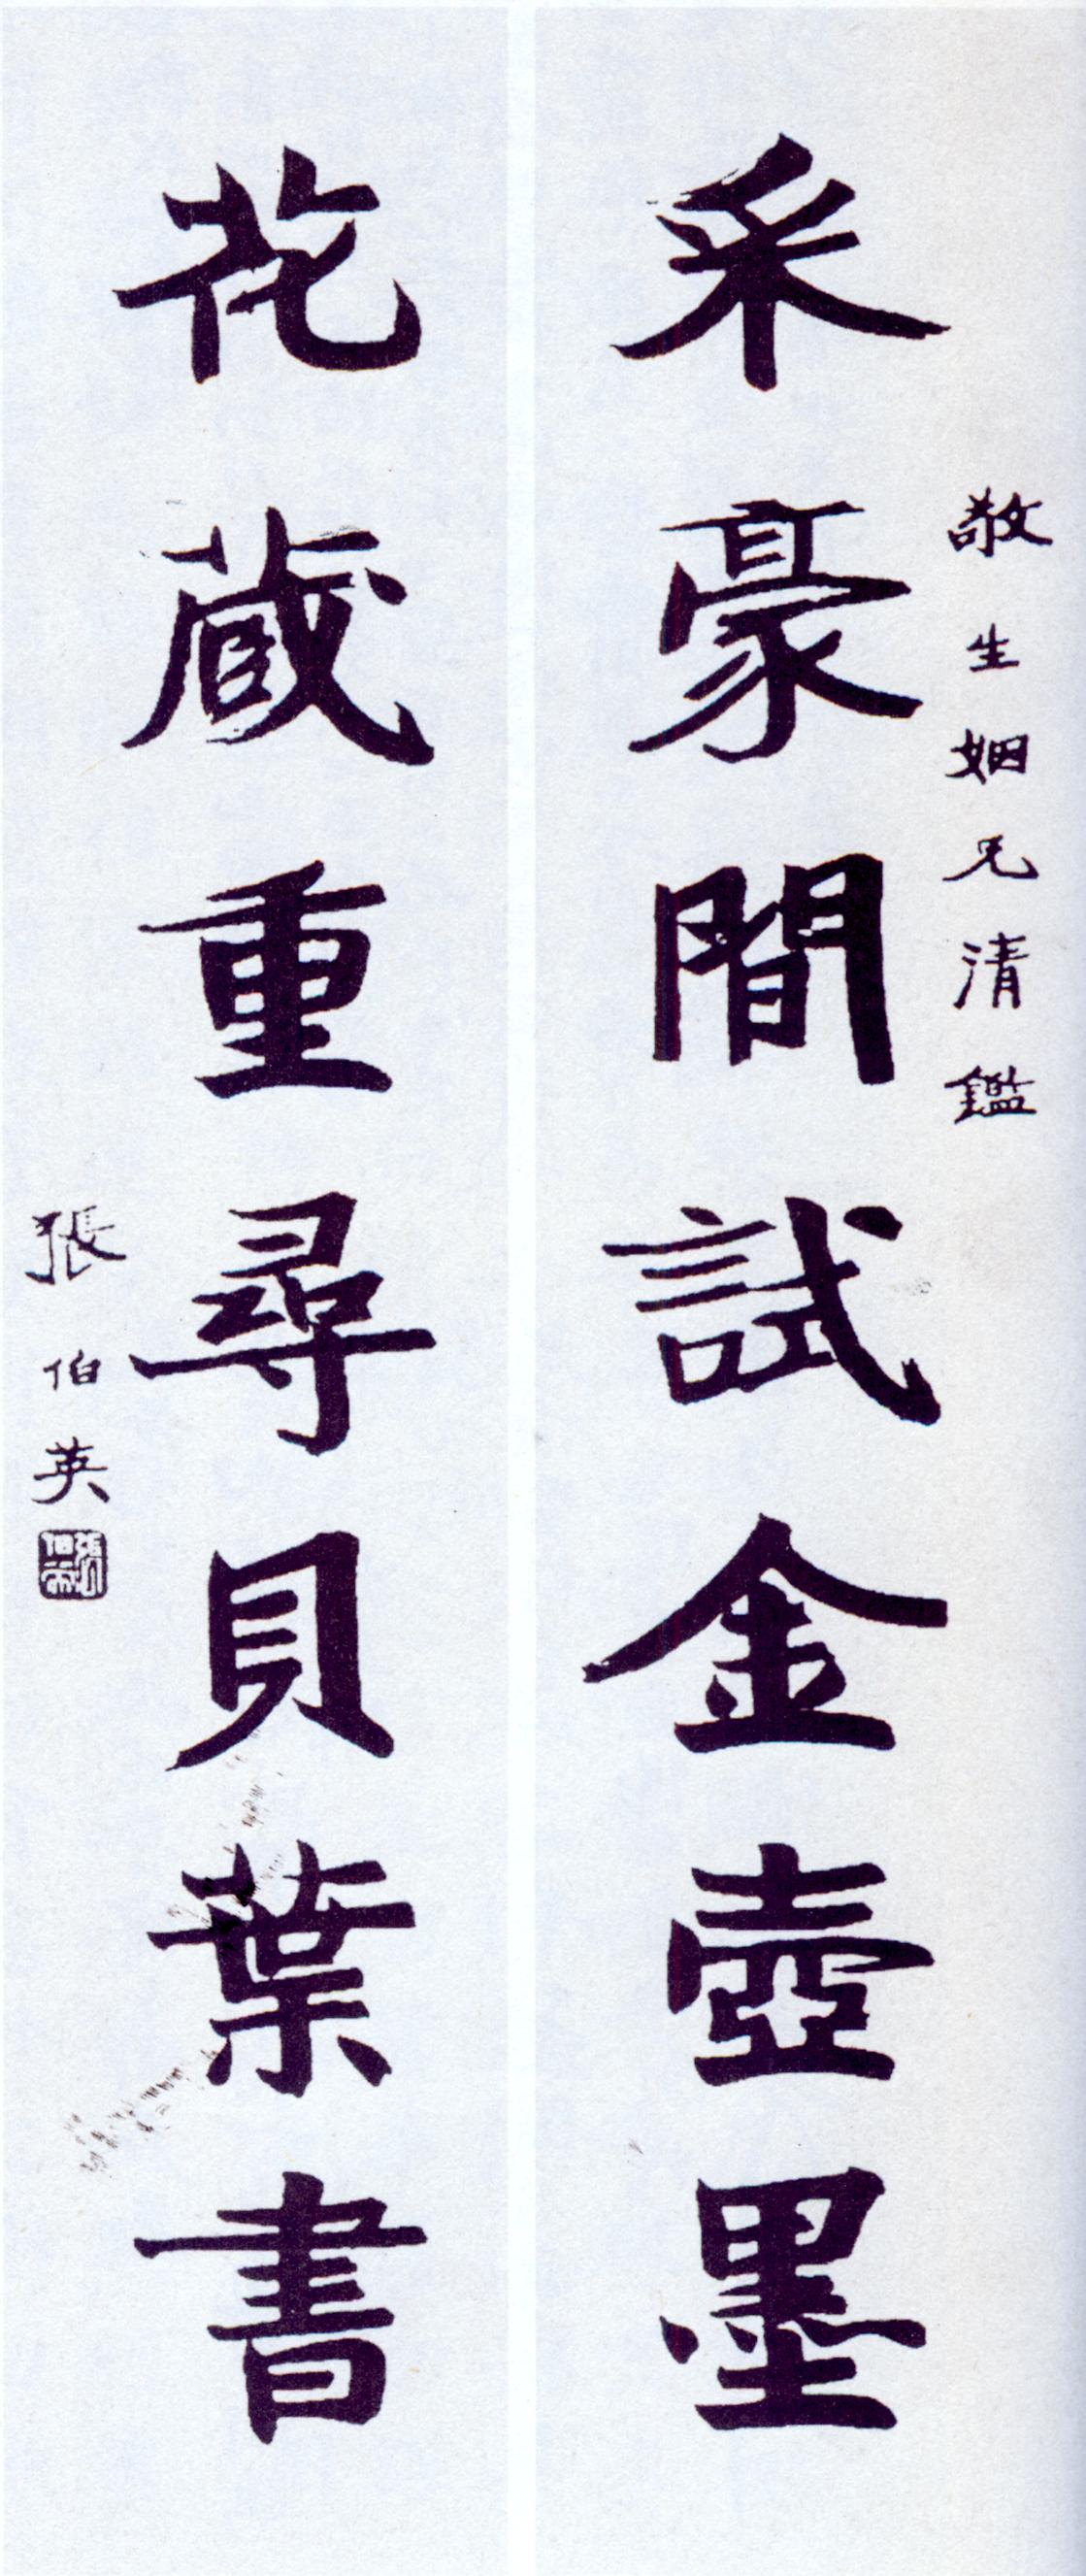 敬生姻兄清鑑
采豪間試金壺墨
花蔵重尋貝葉書
張伯英
張伯英